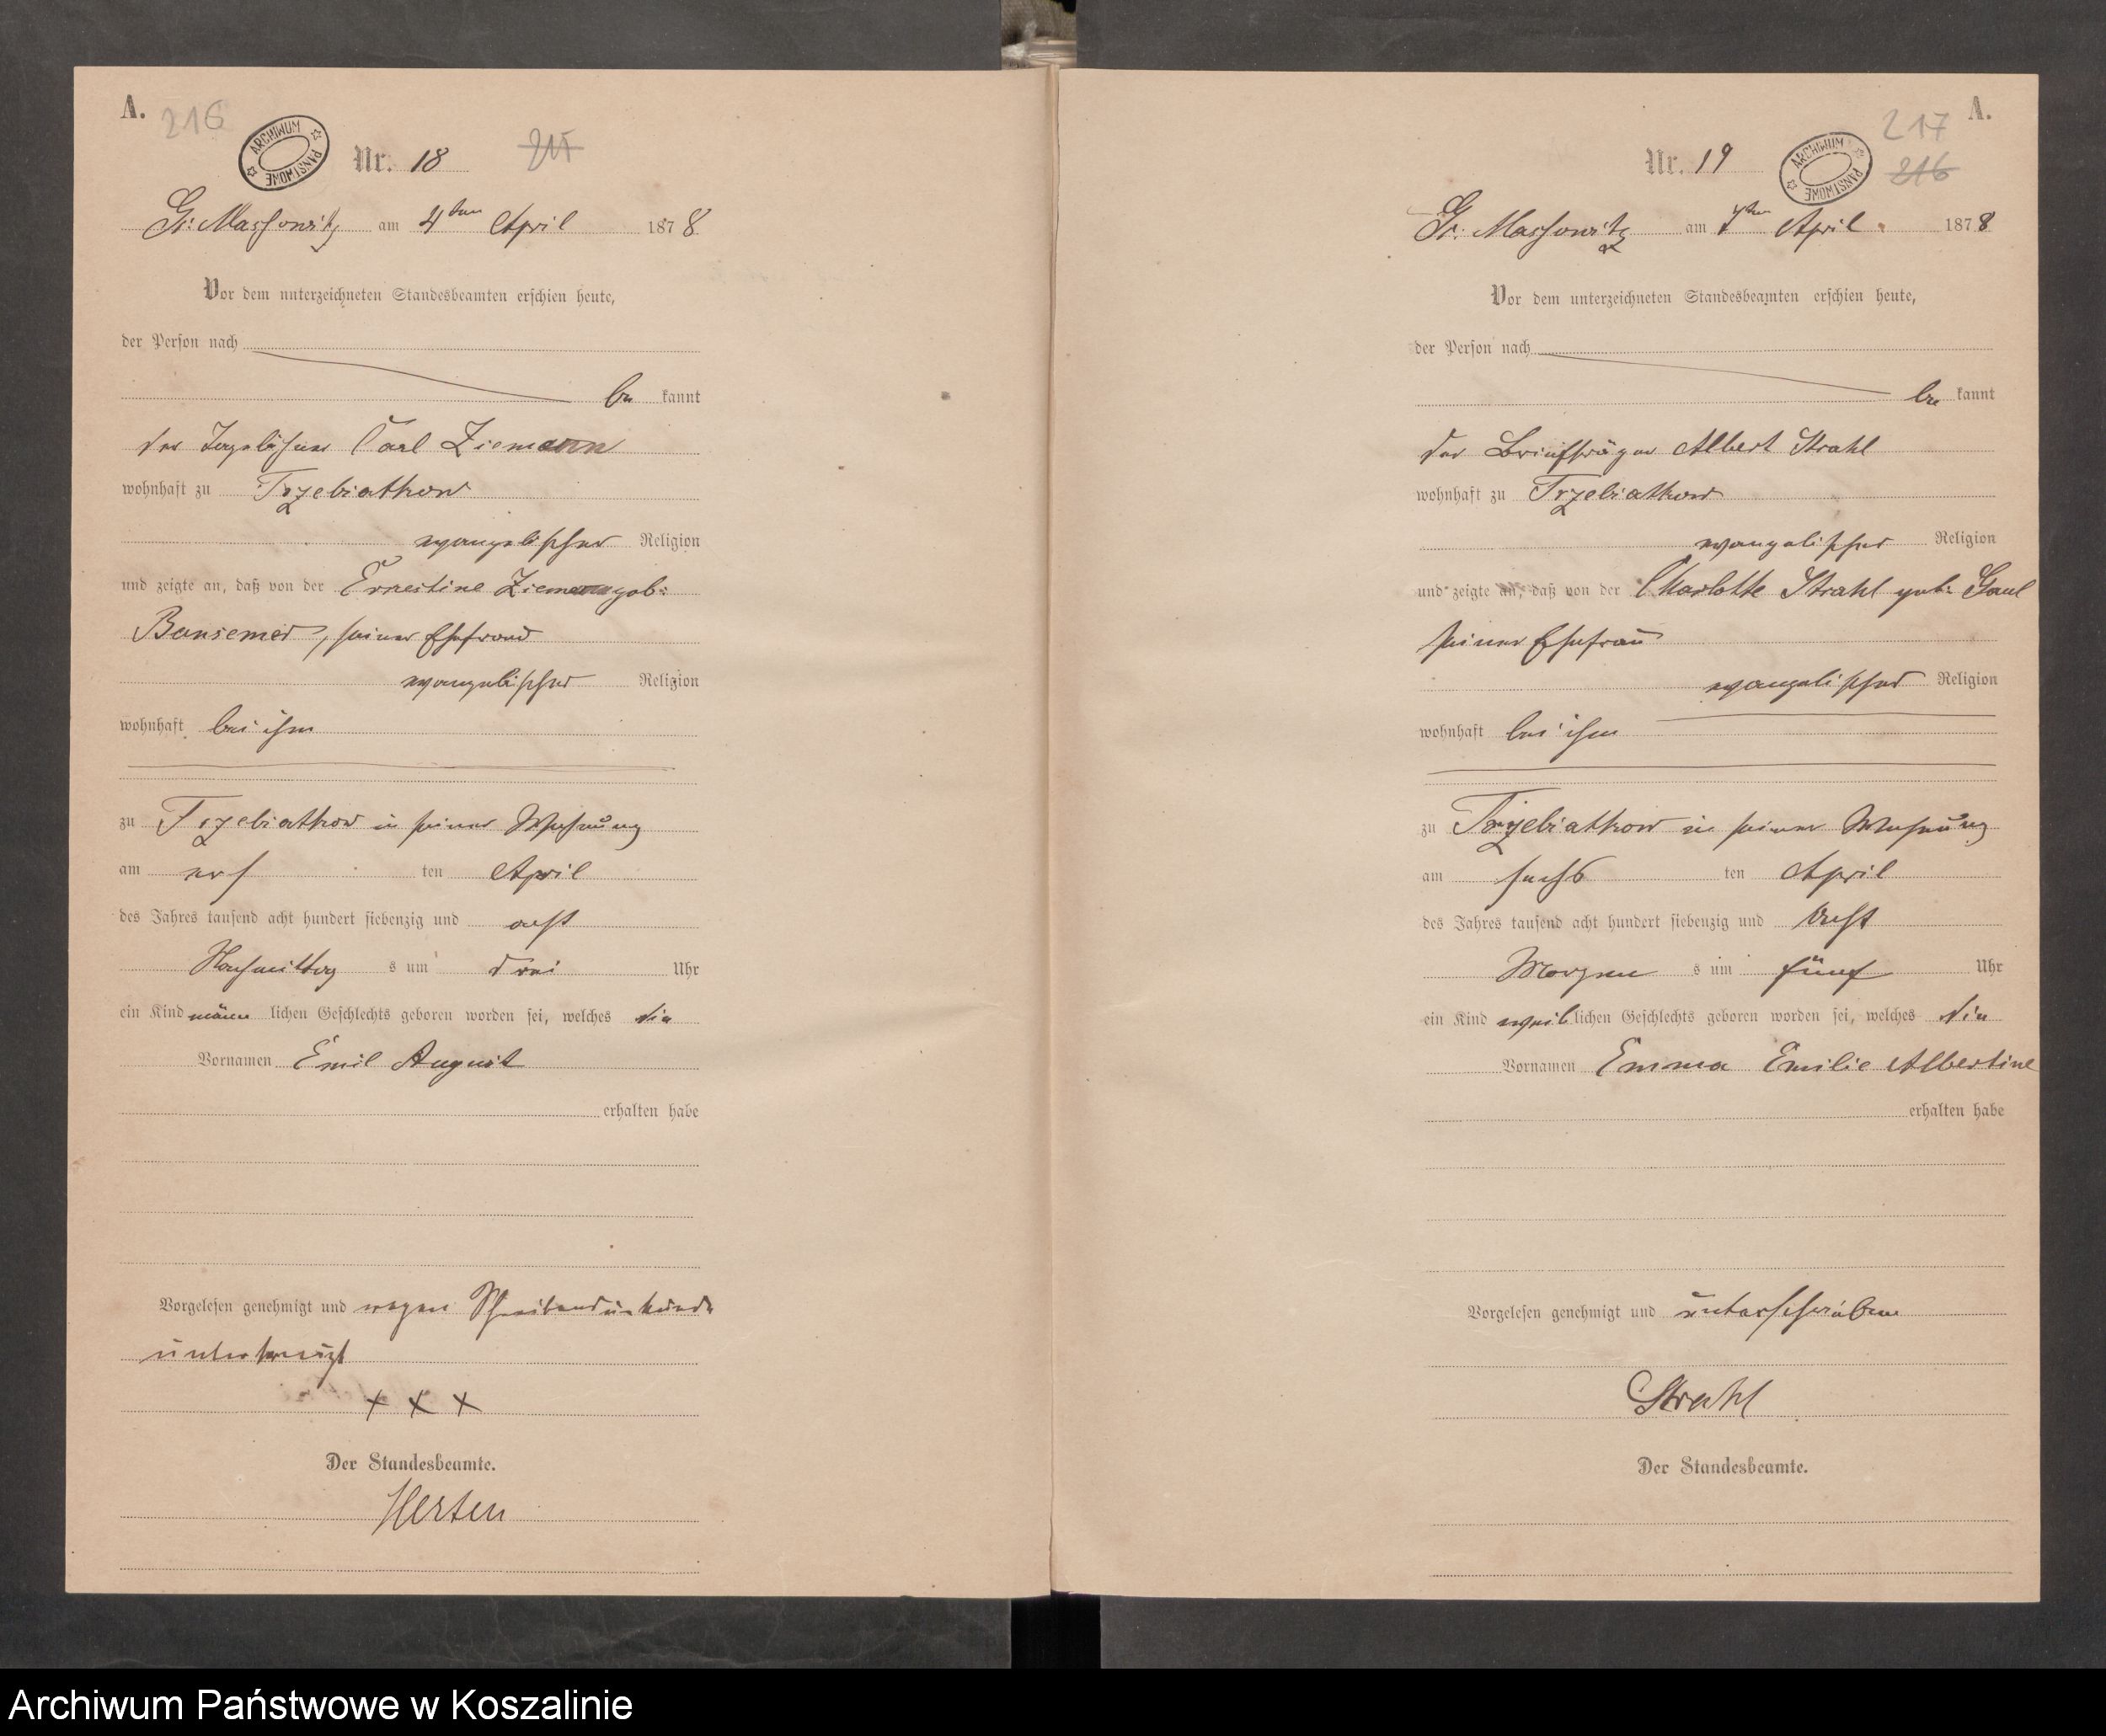 A.
216
ARCHIWUM PAŃSTWOWE
Nr. 18
215
Gr: Massowitz am 4ten April 1878
Vor dem unterzeichneten Standesbeamten erschien heute,
der Person nach
be kannt
der Tagelöhner Carl Ziemann
wohnhaft zu Trzebiatkow
evangelischer Religion
und zeigte an, daß von der Ernestine Ziemann geb:
Bansemer, seiner Ehefrau
evangelischer Religion
wohnhaft bei ihm
zu Trzebiatkow in seiner Wohnung
am ers ten April
des Jahres tausend acht hundert siebenzig und acht
Nachmittag s um drei Uhr
ein Kind männ lichen Geschlechts geboren worden sei, welches die
Vornamen Emil August
erhalten habe
Vorgelesen genehmigt und wegen Schreibensunkunde
unterkreuzt
+ + +
Der Standesbeamte.
Herten
A.
217
ARCHIWUM PAŃSTWOWE
Nr. 19
216
Gr: Massowitz am 7ten April 1878
Vor dem unterzeichneten Standesbeamten erschien heute,
der Person nach
be kannt
der Briefträger Albert Strahl
wohnhaft zu Trzebiatkow
evangelischer Religion
und zeigte an, daß von der Charlotte Strahl geb: Gaul
seiner Ehefrau
evangelischer Religion
wohnhaft bei ihm
zu Trzebiatkow in seiner Wohnung
am sechs ten April
des Jahres tausend acht hundert siebenzig und Acht
Morgen s um fünf Uhr
ein Kind weib lichen Geschlechts geboren worden sei, welches die
Vornamen Emma Emilie Albertine
erhalten habe
Vorgelesen genehmigt und unterschrieben
Strahl
Der Standesbeamte.
Archiwum Państwowe w Koszalinie